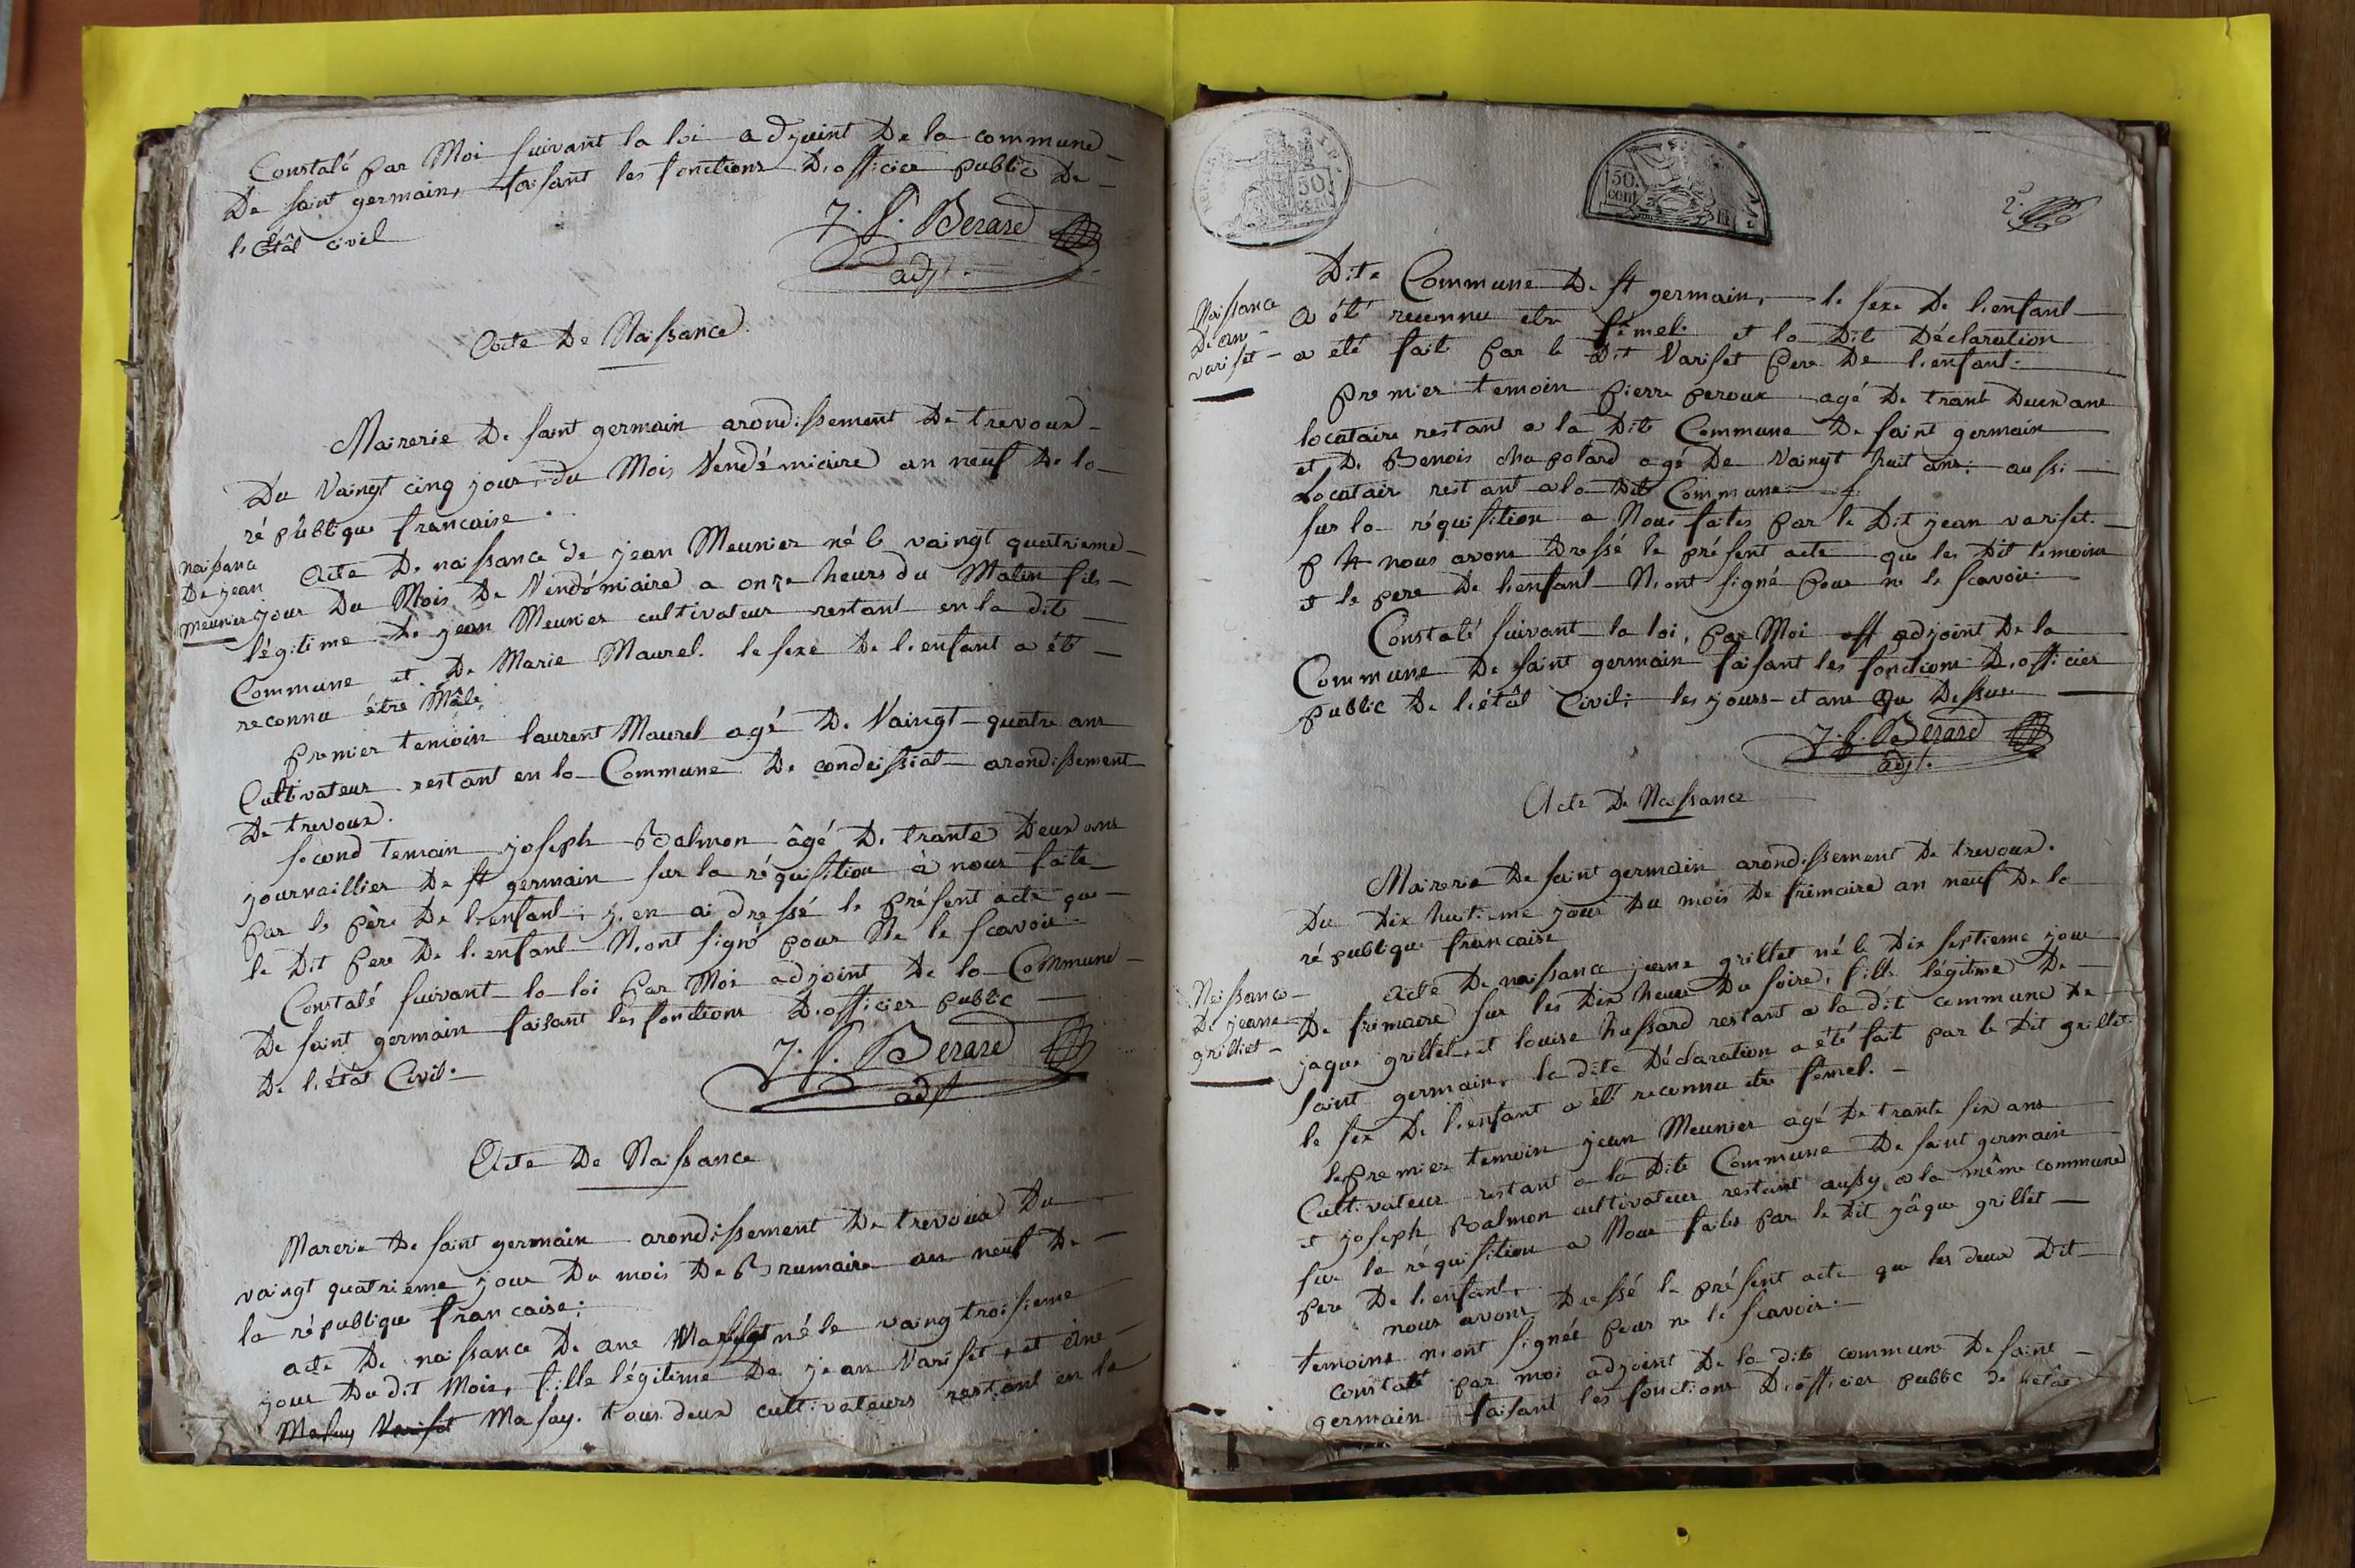 Constaté par Moi suivant la loi adjoint De la commune
De saint germain, faisant les fonctions D'officier public De
l'Etât civil
J. f. Berard
adjt.
Acte De Naissance
Mairerie De saint germain arondissement De trevoux
Du Vaingt cinq jour du Mois Vendémiaire an neuf De la
république francaise.
naissance
De jean
meunier
Acte De naissance de jean Meunier né le vaingt quatrieme
jour Du Mois De Vendémiaire a onze heurs du Matin fils
légitime De jean Meunier cultivateur restant en la dite
Commune et De Marie Maurel. le sexe De l'enfant a été
reconnu être Mâle
premier temoin laurent Maurel agé De Vaingt quatre ans
Cultivateur restant en la Commune De condeissiat arondissement
De trevoux.
second temoin joseph Balmon âgé De trante Deux ans
journaillier De st germain sur la réquisition à nous faite
par le père De l'enfant; j'en ai dressé le présent acte que
le Dit pere De l'enfant N'ont signé pour Ne le scavoir
Constaté suivant la loi par Moi adjoint De la Commune
De saint germain faisant les fonctions D'officier public
De l'étât Civil.
J. f. Berard
adjt
Acte De Naissance
Marerie De saint germain arondissement De trevoux Du
vaingt quatrieme jour Du mois De Brumaire an neuf De
la république francaise;
acte De naissance De ane né le vaing troisieme
jour Du dit Mois, fille légitime De jean Variset, et ane
Masuy Variset Masuy. tous deux cultivateurs restant en la
2e
50
cent
50.
cent
Naissance
De ane
variset
Dite Commune De st germain, le sexe De l'enfant
a été reconnu etre fémel. et la Dite Déclaration
a eté faite par le Dit Variset pere De l'enfant.
premier temoin pierre peroux agé De trant Deux ans
locataire restant a la Dite Commune De saint germain
et De Benois chapolard agé De Vaingt huit ans; aussi
Locatair restant a la Dite Commune
sur la réquisition a Nous faites par le Dit jean variset.
nous avons Dressé le présent acte que les Dit temoins
et le pere De l'enfant N'ont signé pour ne le scavoir
Constaté suivant la loi, par Moi off adjoint De la
Commune De saint germain faisant les fonctions D'officier
public De l'étât Civil; les jours et ans Que Dessus
J. f. Berard
adjt.
Acte De Naissance
Mairerie De saint germain arondissement De trevoux.
Du Dix huitieme jour Du mois De frimaire an neuf De la
république francaise
Naissance
De jeane
grilliet
Acte De naissance jeane grillet né le Dix septieme jour
De frimaire sur les Dix heure Du soire, fille légitime De
jaque grillet, et louise hussard restant a la dit commune De
saint germain, la dite Déclaration a été fait par le Dit grillet
le sex De l'enfant a été reconnu etre fémel.
le premier temoin jean Meunier agé De trante six ans
Cultivateur restant a la Dite Commune De saint germain
et joseph Balmon cultivateur restant aussy a la même commune
sur la réquisition a Nous faites par le Dit jâque grillet
pere De l'enfant,
nous avons Dressé le présent acte que les deux Dit
temoins n'ont signés pour ne le scavoir.
constaté par moi adjoint De la dite commune De saint
germain faisant les fonctions D'officier public De l'etât